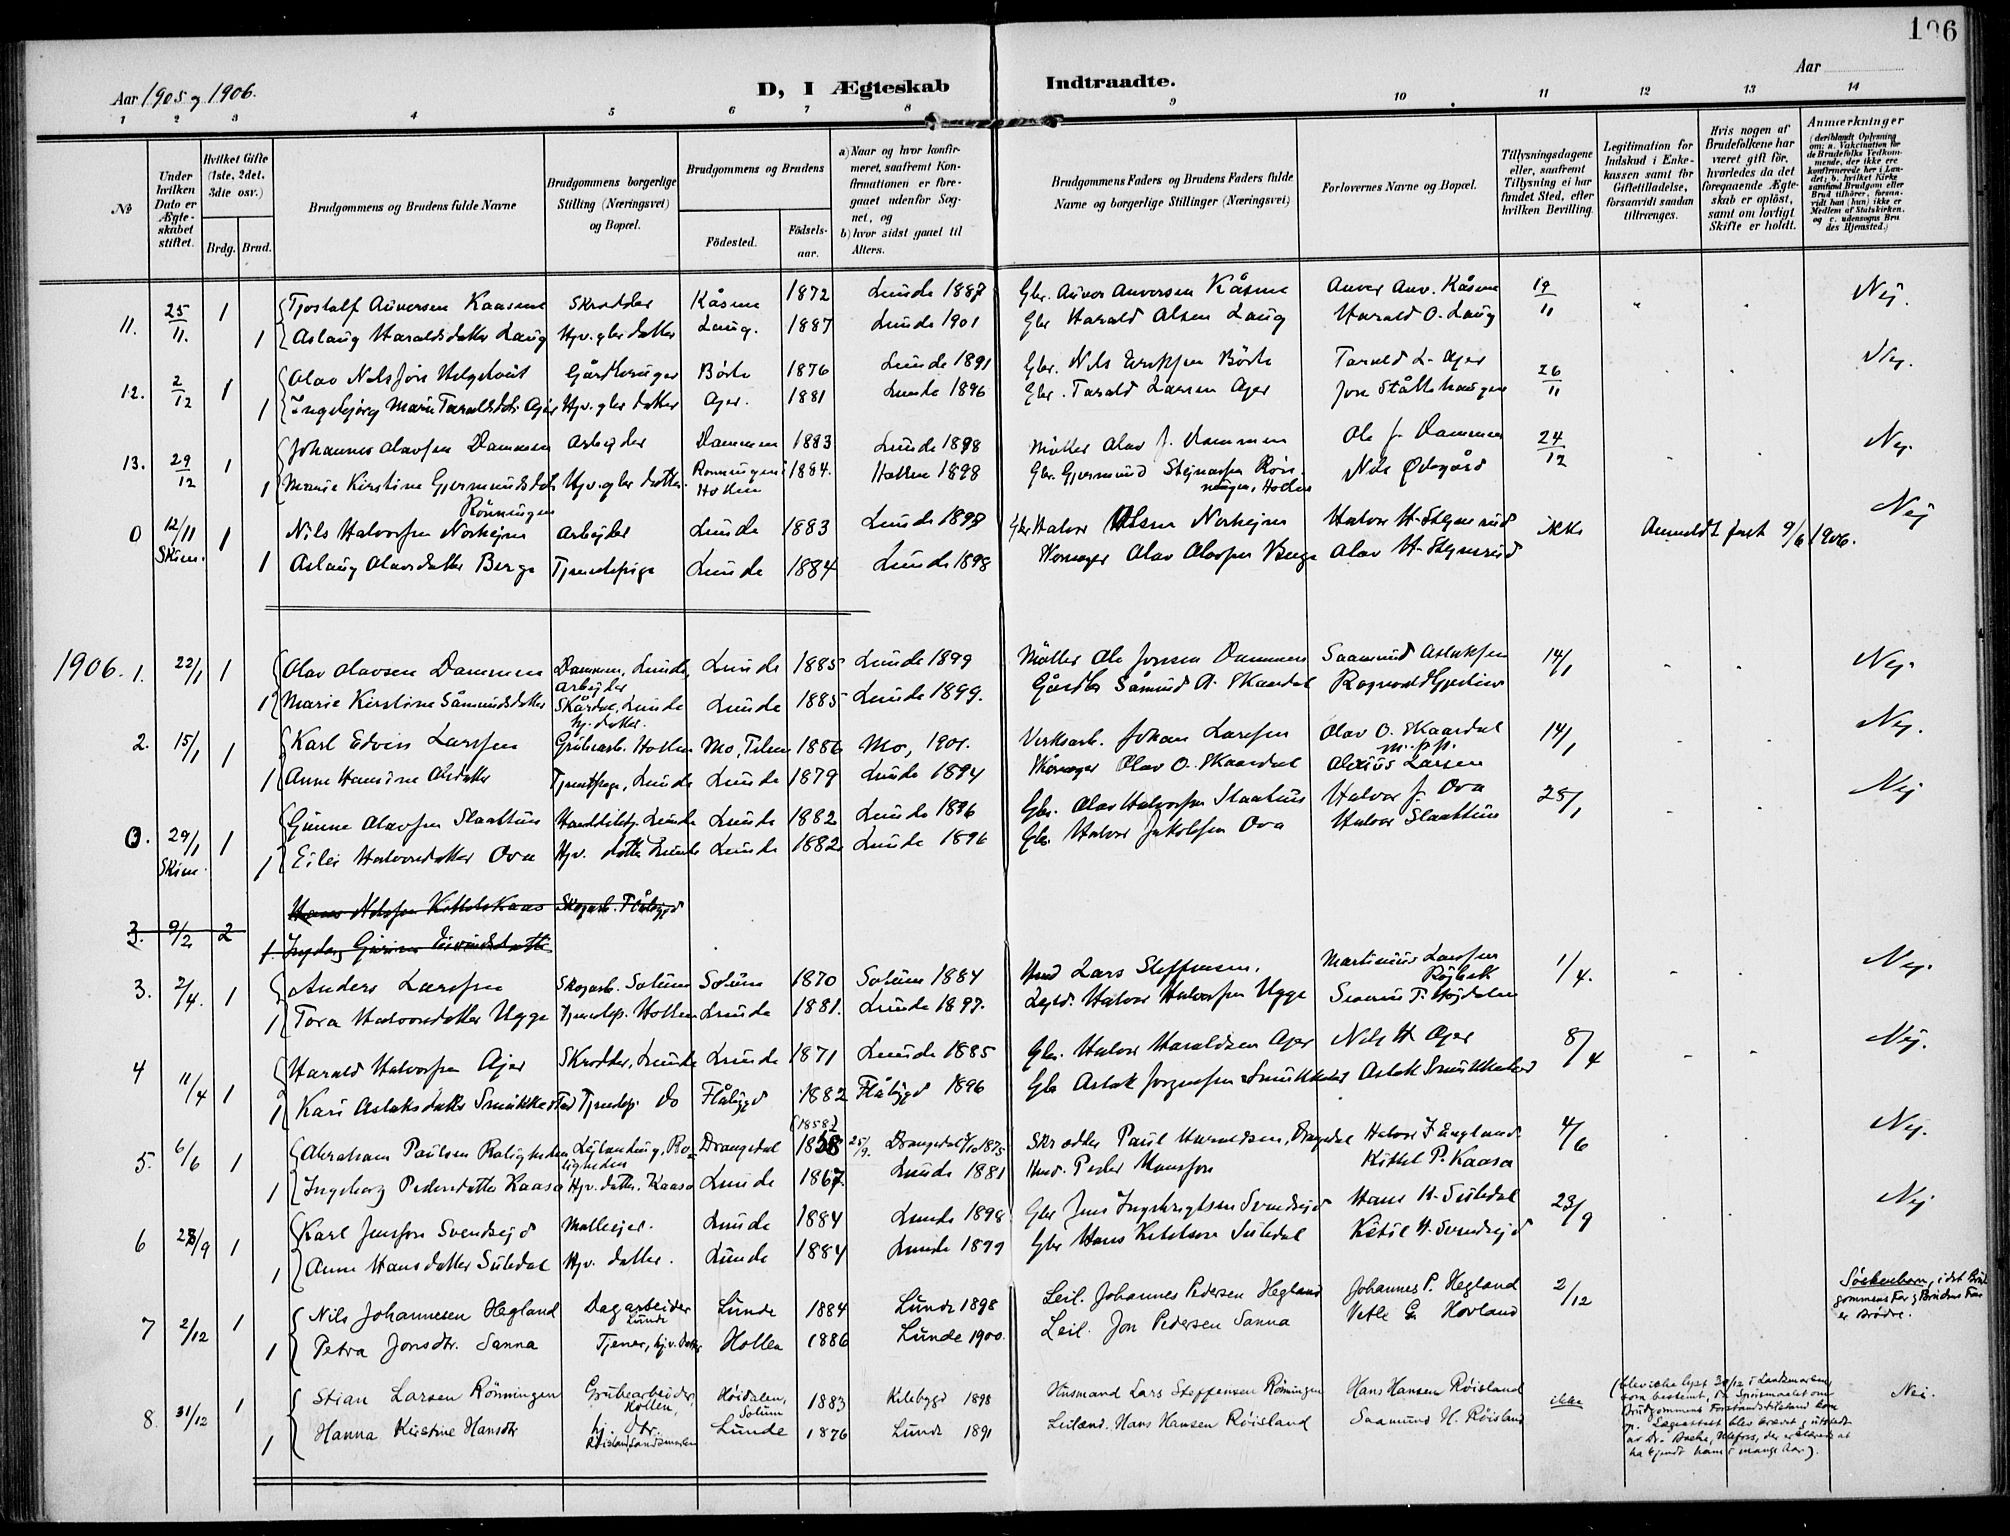 106
Aar 1905 og 1906.
D, I Ægteskab Indtraadte.
Aar
1 2 3 4 5 6 7 8 9 10 11 12 13 14
№
Under hvilken Dato er Ægteskabet stiftet.
Hvilket Gifte (1ste, 2det, 3die osv.)
Brdg. Brud.
Brudgommens og Brudens fulde Navne
Brudgommens borgerlige Stilling (Næringsvei) og Bopæl.
Brudgommens og Brudens
Födested.
Födselsaar.
a) Naar og hvor konfirmeret, saafremt Konfirmationen er foregaaet udenfor Sognet, og
b) hvor sidst gaaet til Alters.
Brudgommens Faders og Brudens Faders fulde Navne og borgerlige Stillinger (Næringsvei)
Forlovernes Navne og Bopæl.
Tillysningsdagene eller, saafremt Tillysning ei har fundet Sted, efter hvilken Bevilling.
Legitimation for Indskud i Enkekassen samt for Giftetilladelse, forsaavidt saadan tiltrænges.
Hvis nogen af Brudefolkene har været gift för, hvorledes da det foregaaende Ægteskab er oplöst, samt om lovligt Skifte er holdt.
Anmærkninger
(deriblandt Oplysning om: a. Vakcination for de Brudefolks Vedkommende, der ikke ere konfirmerede her i Landet; b. hvilket Kirkesamfund Brudgom eller Brud tilhörer, forsaavidt han (hun) ikke er Medlem af Statskirken, og c. udensogns Brudes Hjemsted.)
11. 25/11. 1 Tjostolf Auversen Kaasene Skrædder Kåsene 1872 Lunde 1887 Gbr. Auver Anversen Kåsene Auver Anv. Kåsene 19/11 Nej.
1 Aslaug Haraldsdatter Laug Hjv. gbr datter Laug. 1887 Lunde 1901 Gbr Harald Olsen Laug Harald O. Laug
12. 2/12 1 Olav Nilsson Helgetveit Gårdbruger Börte 1876 Lunde 1891 Gbr. Nils Eriksen Börte Tarald L. Ajer 26/11 Nej.
1 Ingebjörg Marie Taraldsdtr. Ajer Hjv. gbr datter Ajer. 1881 Lunde 1896 Gbr. Tarald Larsen Ajer Jon Stållehaugen
13. 29/12 1 Johannes Olavsen Dammen Arbejder Dammen 1883 Lunde 1898 Möller Olav J. Dammen Ole J. Dammen 24/12 Nej.
1 Marie Kirstine Gjermundsdtr Hjv. gbr datter. Rönningen Hollen 1884. Hollen 1898 Gbr. Gjermund Stejnarsen Rönningen, Hollen Nils Ødegård
Rönningen
0 12/11 Skien. 1 Nils Halvorsen Norhejm Arbejder Lunde 1883 Lunde 1898 Gbr Halvor Olsen Norhejm Halvor H. Stejnsrud ikke Anmeldt först 9/6 1906. Nej
1 Aslaug Olavsdatter Berge Tjenestepige Lunde 1884 Lunde 1898 Olav Olavsen Berge Olav H. Stejnsrud
1906. 1. 22/1 1 Olav Olavsen Dammen Dammen, Lunde, Arbejder Lunde 1885 Lunde 1899 Möller Ole Jonsen Dammen Saamund Aslaksen 14/1 Nej.
1 Marie Kirstine Såmundsdatter Skårdal, Lunde hj. datter. Lunde 1885 Lunde 1899. Gårdbr Såmund A. Skaardal
2. 15/1 1 Karl Edvin Larsen Grubearb. Hollen Mo, Telem 1886 Mo, 1901. Verksarb. Johan Larsen Olav O. Skaardal m.p.p. 14/1 Nej.
1 Anne Hansine Olsdatter Tjenestpige, Lunde Lunde 1879 Lunde 1894 Olav O. Skaardal Alexius Larsen
0. 29/1 Skien. 1 Gunne Olavsen Slaattun Lunde Lunde 1882 Lunde 1896 Gbr. Olav Halvorsen Slaattun Halvor J. Ova 28/1 Nej
1 Eilei Halvorsdatter Ova Hjv. datter Lunde Lunde 1882 Lunde 1896 Gbr. Halvor Jakobsen Ova Halvor Slaattun
3. 9/2 2 Hans Nilssen Kittelskaas Skogarb. Flåbygd
1 Gurine Eivindsdatter
3. 2/4. 1 Anders Larsen Skogarb. Solum Solum 1870 Solum 1884 Hmd Lars Steffensen. Martinius Larsen 1/4. Nej.
1 Tora Halvorsdatter Ugge Tjenestep. Hollen Lunde 1881. Lunde 1897. Halvor Halvorsen Ugge Severin T. Höjdalen
4 11/4 1 Harald Halvorsen Ajer Skrædder, Lunde Lunde 1871 Lunde 1885 Gbr. Halvor Haraldsen Ajer Nils H. Ajer 8/4 Nej.
1 Kari Aslaksdatter Smukkestad Tjenestep. do Flåbygd 1882 Flåbygd 1896 Gbr Aslak Jorgensen Smukkestad Aslak Smukkestad
5. 6/6 1 Abraham Paulsen Roligheden Roligheden Drangedal (1858) 1858 25/9. Drangedal 3/10 1875 Skrædder Paul Haraldsen, Drangedal Halvor J. England. 4/6 Nej.
1 Ingeborg Pedersdatter Kaasa Hjv. datter. Kaasa Lunde 1867. Lunde 1881 Hmd. Peder Hansson Kittel P. Kaasa
6 28/9 1 Karl Jensson Svendsejd Mölleejer. Lunde 1884 Lunde 1898 Gbr Jens Ingebrigtsen Svendsejd Hans K. Suledal 23/9 Nej
1 Anne Hansdatter Suledal Hjv. datter. Lunde 1884 Lunde 1899 Gbr Hans Ketelson Suledal Ketil H. Svendsejd
7 2/12 1 Nils Johannesen Hegland Dagarbeider Lunde Lunde 1884 Lunde 1898 Leil. Johannes Pedersen Hegland Johannes P. Hegland 2/12 Söskenbarn, idet Brudgommens Far og Brudens Far er Brödre.
1 Petra Jonsdtr. Sanna Tjener, hjv. Datter Hollen 1886 Lunde 1900. Leil. Jon Pedersen Sanna Vetle G. Hovland
8. 31/12 1 Stian Larsen Rönningen Grubearbeider, Hollen, Höidalen, Solum 1883 Kilebygd 1898 Husmand Lars Steffensen Rönningen Hans Hansen Röisland ikke (blev ikke lyst 30/12 i Landsmarken som bestemt, da Spörsmaalet om Brudgommens Forstandstilstand kom op. Lægeattest blev krævet og utstedt av Dr. Backe, Ulefoss, der erklærede at ha kjendt ham i mange Aar). Nei.
1 Hanna Kirstine Hansdtr hj. dtr. Röisland, Landsmarken Lunde 1876 Lunde 1891 Leilænd. Hans Hansen Röisland Saamund H. Röisland